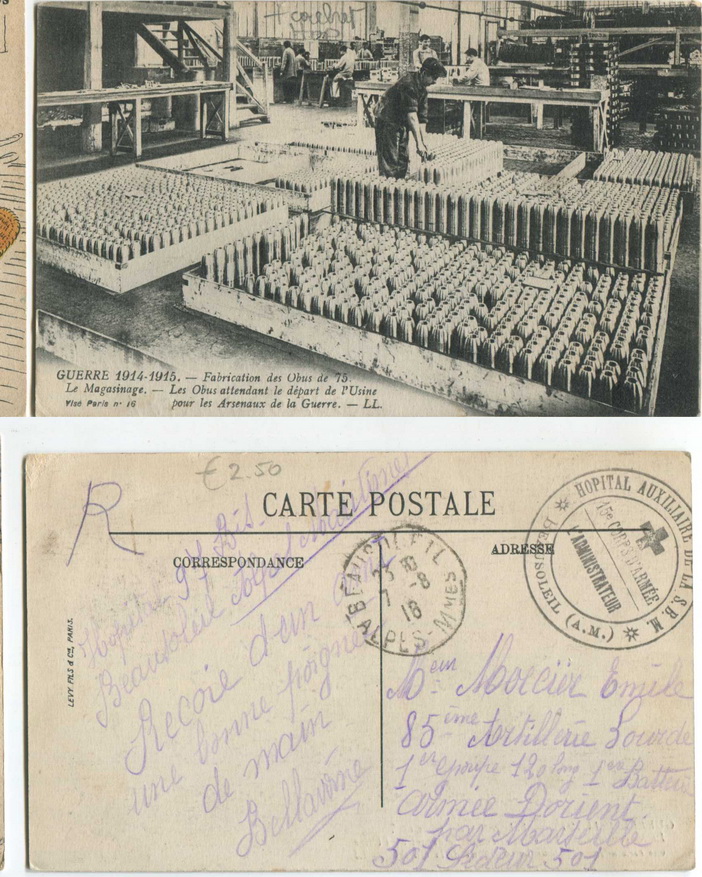 GUERRE 1914-1915. — Fabrication des Obus de 75.
Le Magasinage. — Les Obus attendant le départ de l'Usine
Visé Paris nº 16 pour les Arsenaux de la Guerre. — LL.
€2.50
R
CARTE POSTALE
CORRESPONDANCE
ADRESSE
LEVY FILS & Cie, PARIS.
Hopital 97 Bis
Beausoleil Alpes Maritimes
Recoie d'un ami
une bonne poignée
de main
Bellavoine
BEAUSOLEIL
7 -8
16
ALPES-MMES
HOPITAL AUXILIAIRE DE LA S.B.M.
BEAUSOLEIL (A.M.)
15e CORPS D'ARMÉE
L'ADMINISTRATEUR
Mercier Emile
85 ième Artillerie Lourde
1er groupe 120 long 1ere Batterie
Armée Dorient
par Marseille
501 Secteur 501